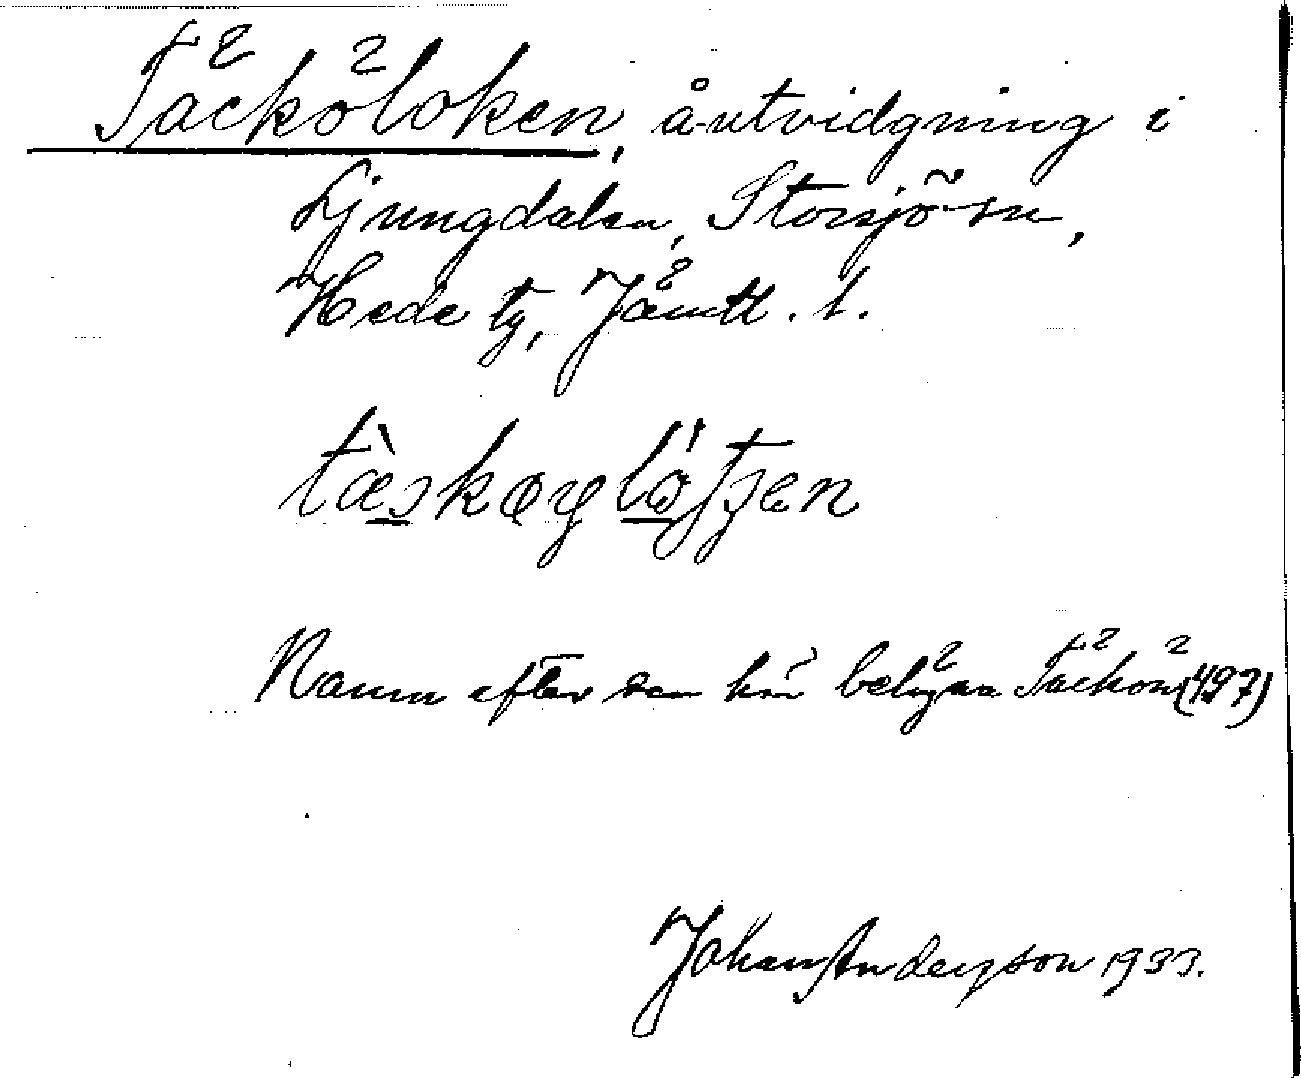 Täcköloken, å-utvidgning i
Ljungdalen, Storsjö sn,
Hede tg, Jämtl. l.
Namn efter den här belägna Täckön (497)
Johan Anderson 1933.